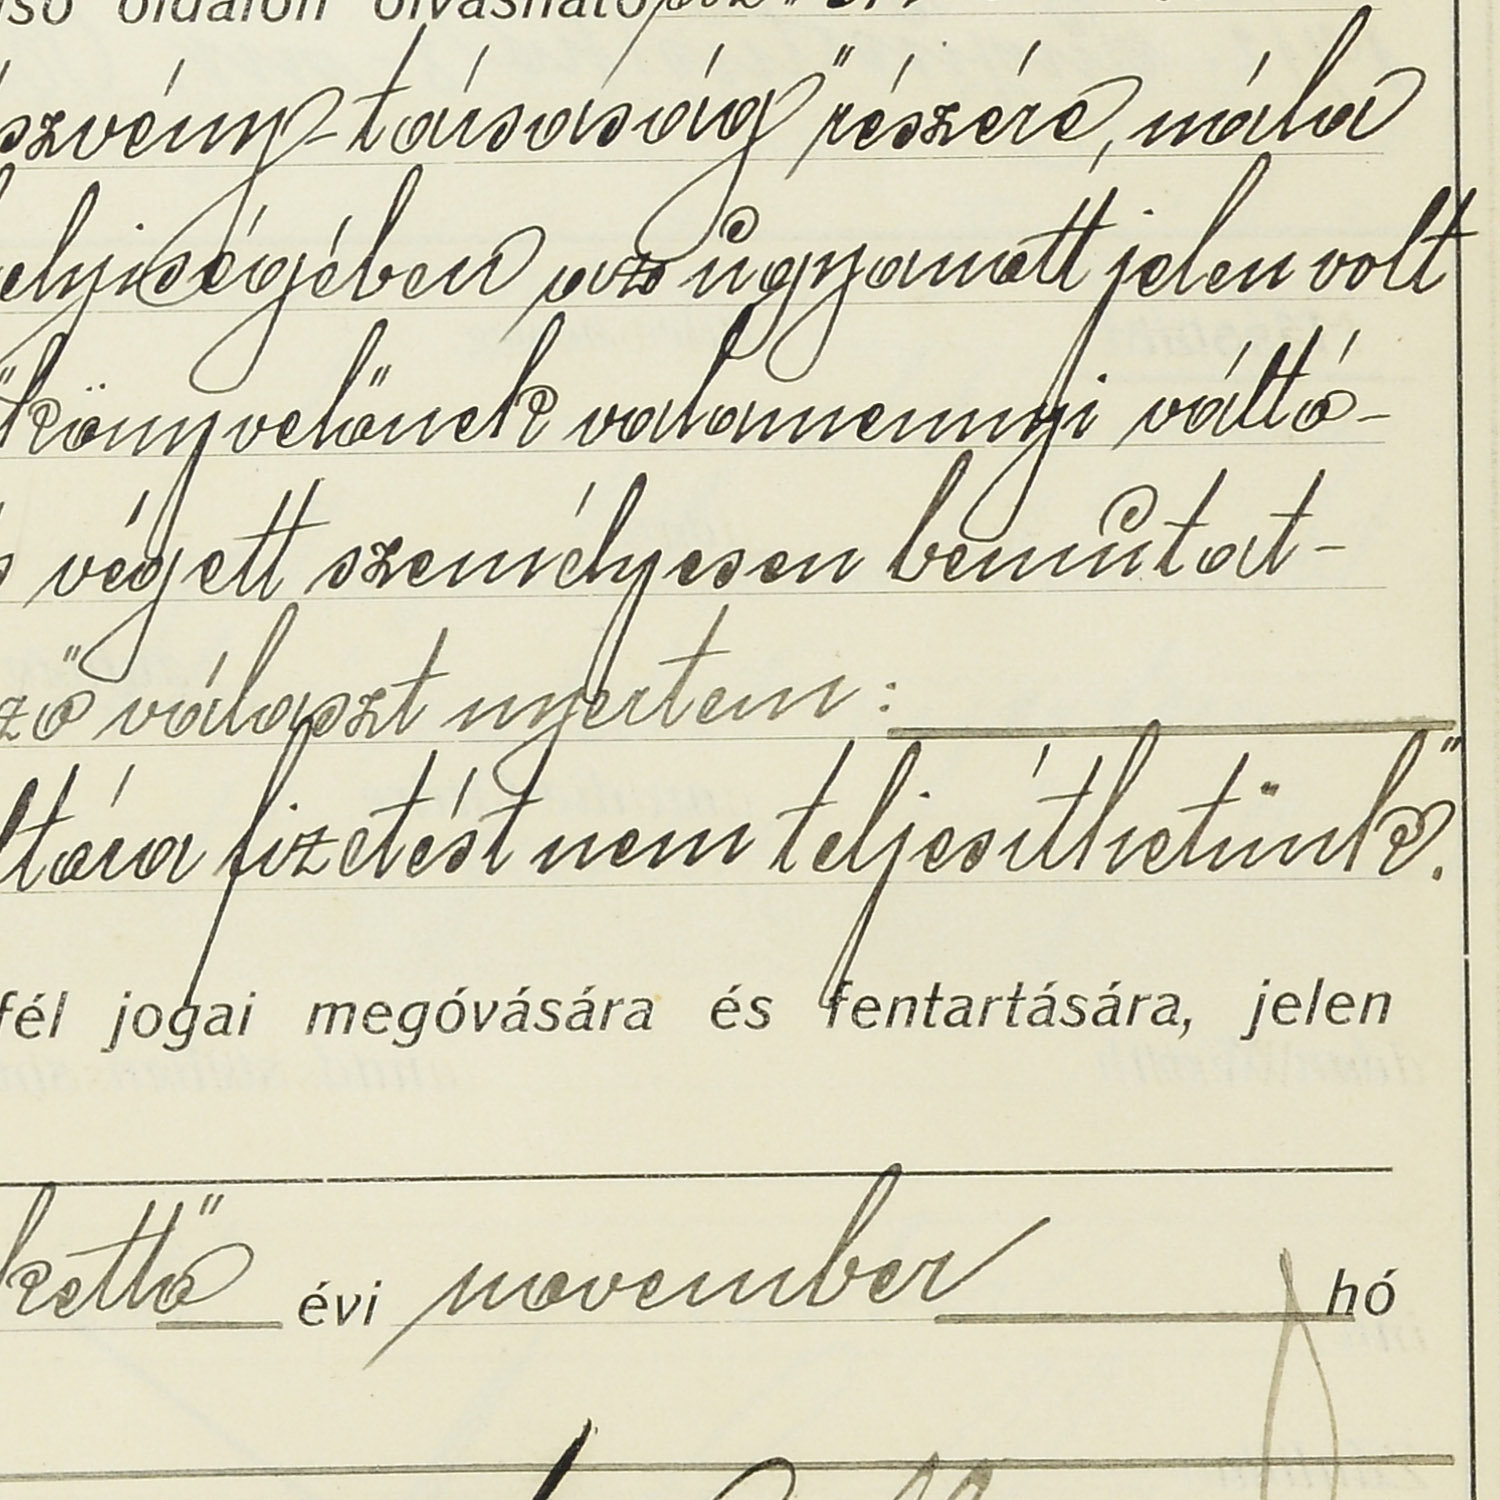 oldalon olvasható
szvény-társaság" részére, nála
elyiségében az ugyanott jelen volt
könyvelőnek valamennyi váltó-
végett személyesen bemutat-
ző választ nyertem:
ltára fizetést nem teljesíthetünk."
fél jogai megóvására és fentartására, jelen
kettő évi november hó